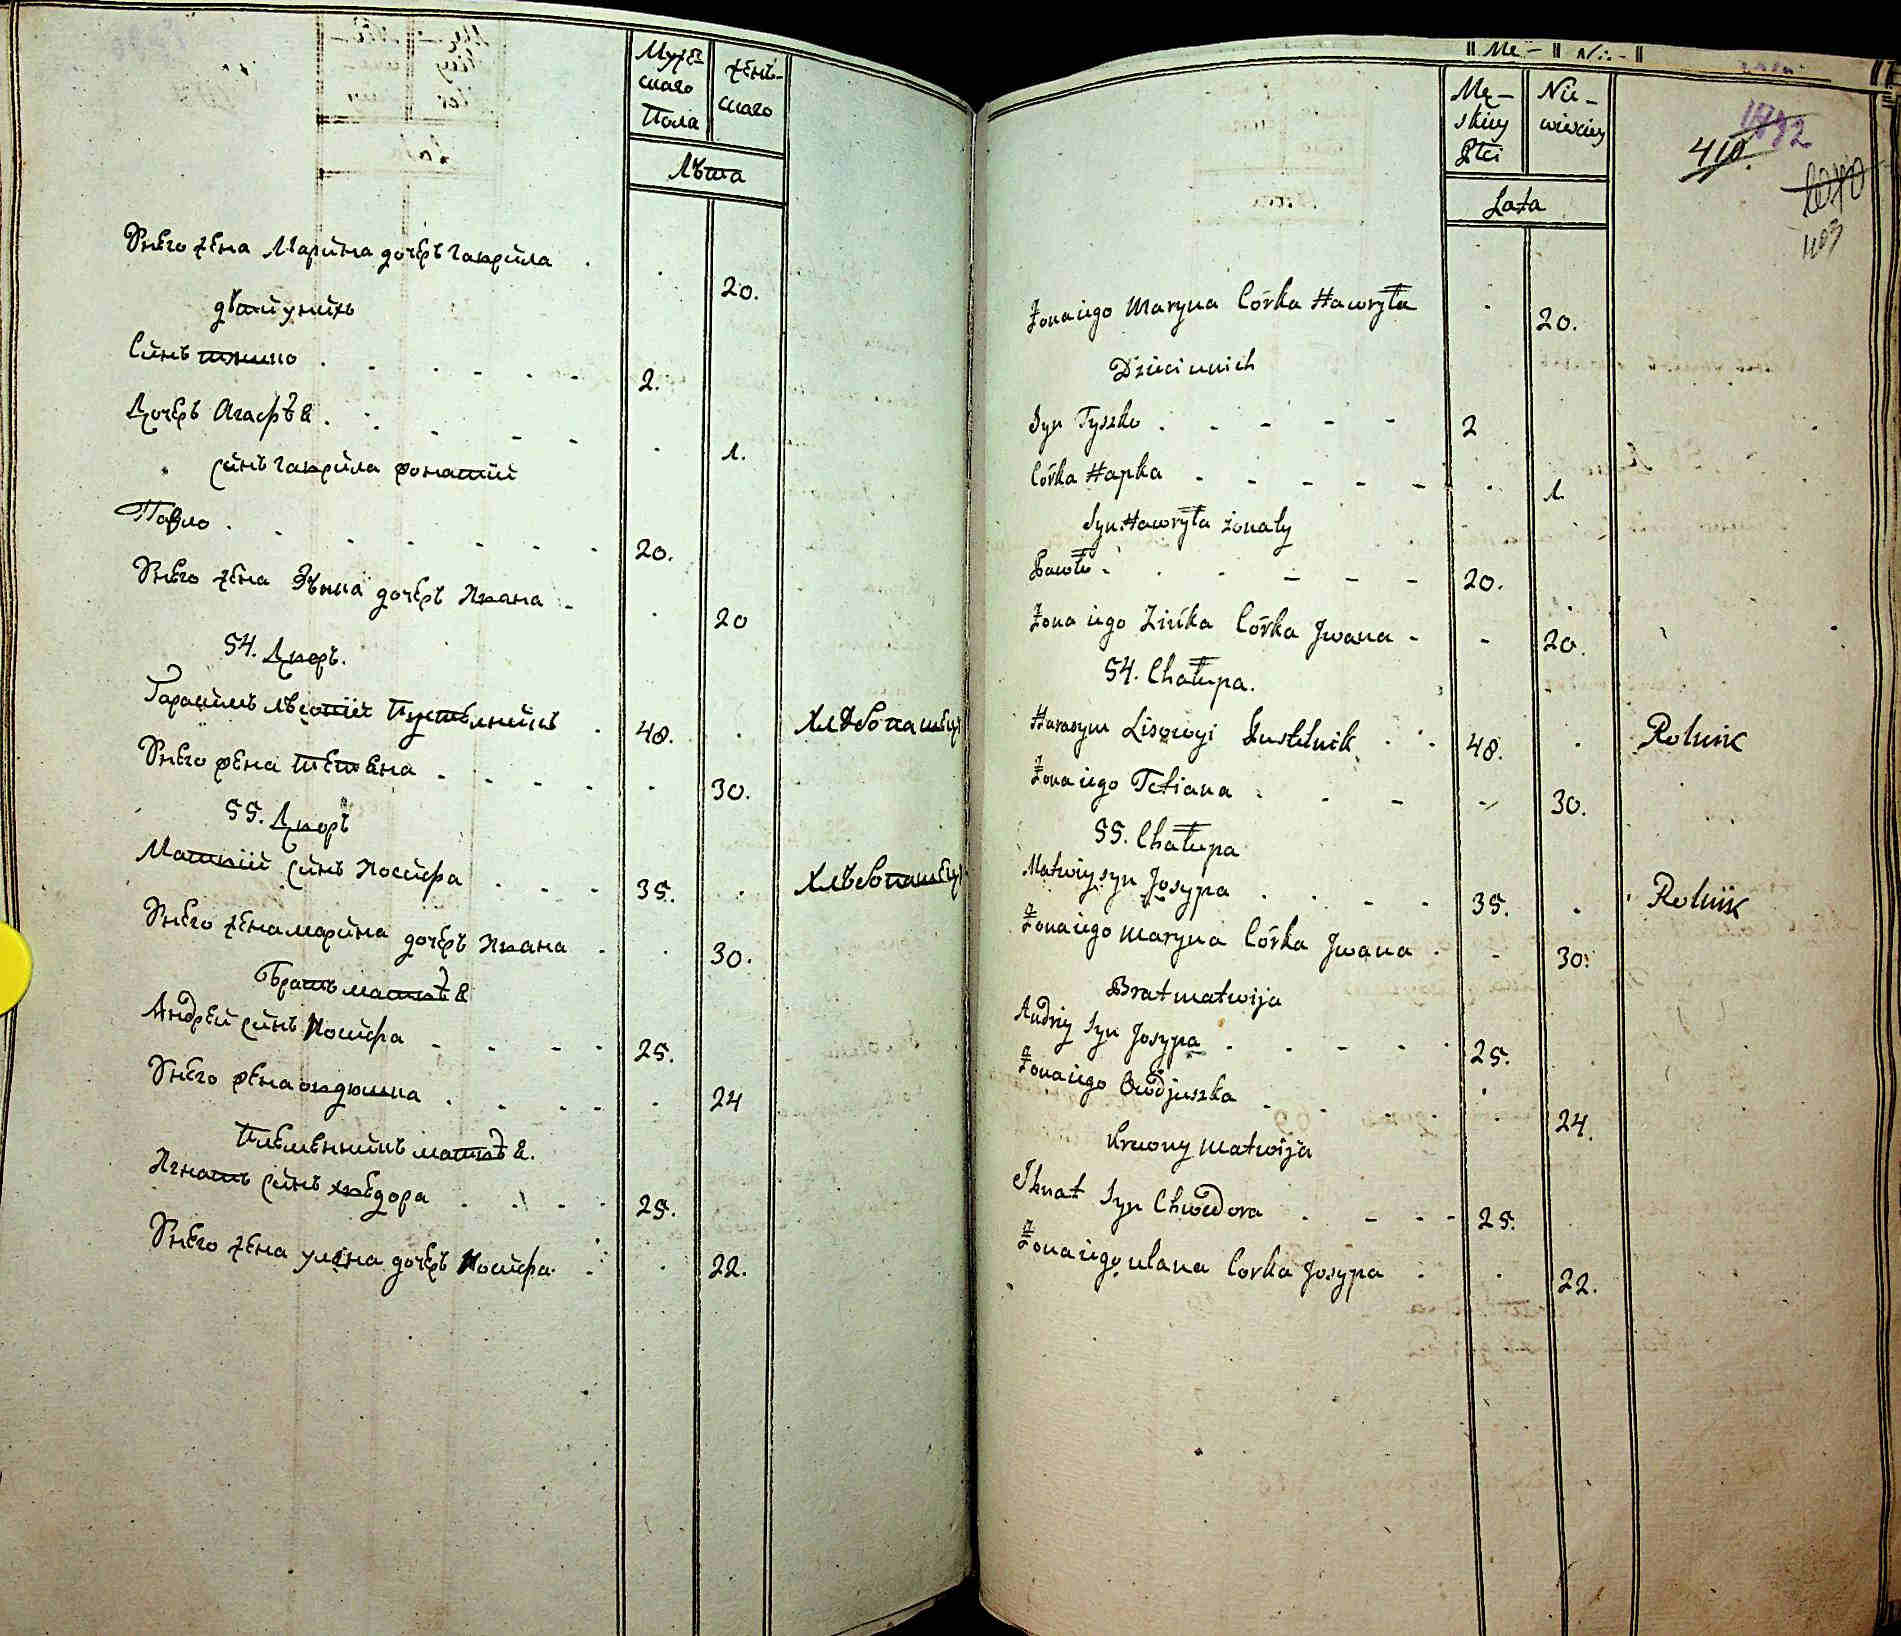 Мужес
каго
Пола
женъ-
скаго
Лѣта
Унего жена Марина дочеръ Гаврила . . 20.
дѣти унихъ
Синъ тишко . . . . . . 2.
Дочеръ Агафѣя . . . . . . 1.
синъ Гаврила жонатій
Павло . . . . . . . 20.
Унего жена Зѣнка дочеръ Ивана - . 20
54. Дворъ.
Гарасимъ лѣсовіи Пустѣлникъ . 48. . Хлѣбопашецъ
Унего жена тетяна . . . . . 30.
55. Дворъ
Матвій синъ Иосифа . . . 35. . Хлѣбопашецъ
Унего жена марина дочеръ Ивана . . 30.
Братъ матвѣя
Андрей синъ Иосифа - - - - 25.
Унего жена овдюшка . . . . . 24
Племѣнникъ матвѣя.
Игнатъ синъ хвѣдора . . . . 25.
Унего жена уляна дочеръ Иосифа . . 22.
Mę- Ni.-
Mę-
skiey
Płci
Nie-
wieściey
Lata
410.
1792
403
Żona iego Maryna Córka Hawryła . 20.
Dzieci unich
Syn Tyszko . . - - - 2
Córka Hapka - - - - - . 1.
Syn Hawryła żonaty
Pawło - . . - - - 20.
Żona iego Zińka Córka Jwana - - 20.
54. Chałupa.
Harasym Lisowyi Pustelnik . . 48. . Rolnik
Żona iego Tetiana . . - - 30.
55. Chałupa
Matwiy syn Josypa . . . - . 35. . Rolnik
Żona iego maryna Córka Jwana . - 30.
Brat matwija
Andriy Syn Josypa . . . . . 25.
Żona iego Owdjuszka . . . . 24.
krewny matwija
Ihnat Syn Chwedora . - - - 25.
Żona iego ulana Corka Josypa . . 22.